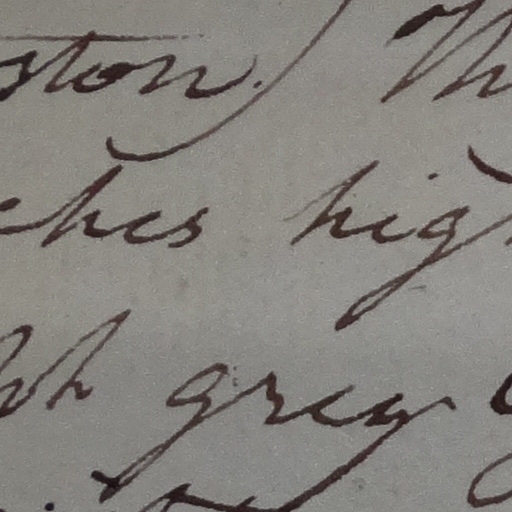 ston.) Th
ches high
sh grey